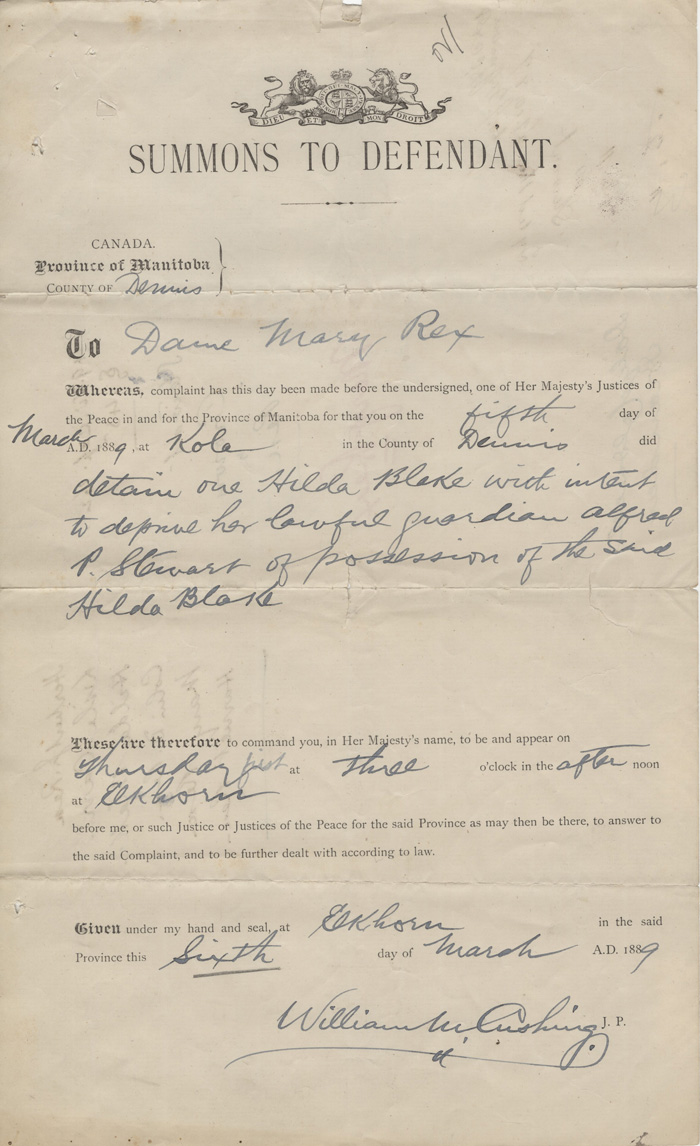 DIEU ET MON DROIT
SUMMONS TO DEFENDANT.
CANADA.
Province of Manitoba
COUNTY OF Dennis
To Dame Mary Rex
Whereas, complaint has this day been made before the undersigned, one of Her Majesty's Justices of
the Peace in and for the Province of Manitoba for that you on the fifth day of
March A.D. 1889, at Kola in the County of Dennis did
detain one Hilda Blake with intent
to deprive her lawful guardian alfred
P. Stewart of possession of the said
Hilda Blake
These are therefore to command you, in Her Majesty's name, to be and appear on
Thursday next at three o'clock in the after noon
at Elkhorn
before me, or such Justice or Justices of the Peace for the said Province as may then be there, to answer to
the said Complaint, and to be further dealt with according to law.
Given under my hand and seal, at Elkhorn in the said
Province this Sixth day of March A.D. 1889
William M. Cushing J. P.